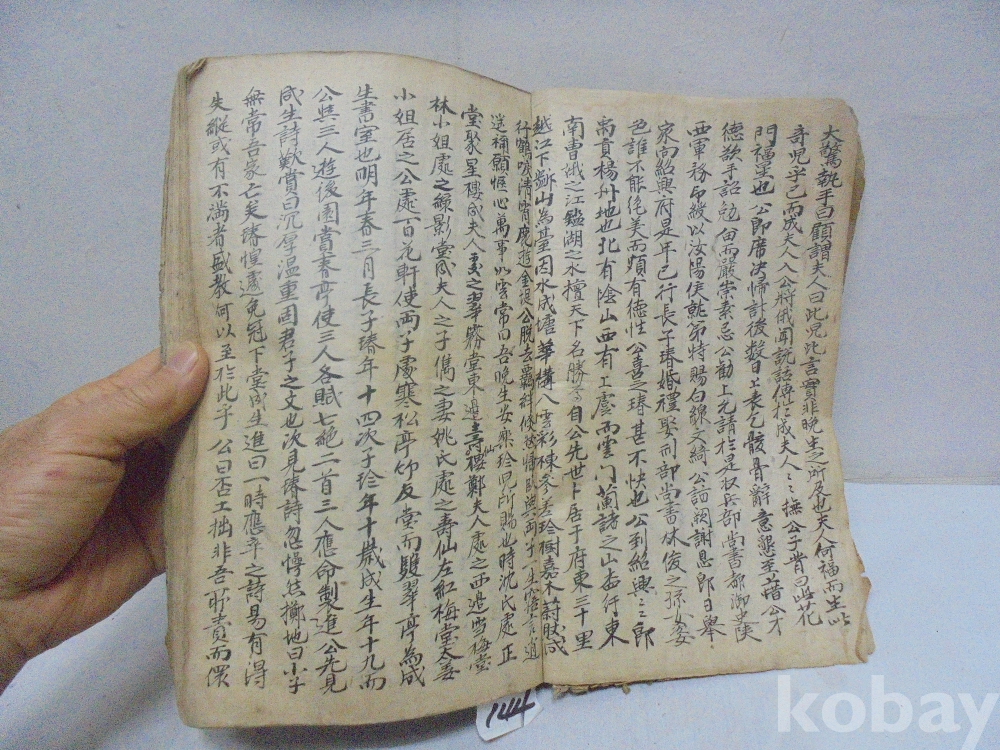 大驚執手曰顧謂夫人曰此兒此言實非晚生之所及也夫人何福而生此
奇兒乎已而成夫人入公將俄聞說話傳於成夫人々々撫公子背曰此花
門福星也公即席決歸計後數日上表乞骸骨辭意懇至藉公才
德欲手詔勉留而嚴崇素忌公勸上允請於是以兵部尚書都御史陝
西軍務印綬以汝陽侯就第特賜白綠文綺公詣闕謝恩即日舉
家向紹興府是年已行長子瑃婚禮娶刑部尚書林俊之孫女姿
色誰不能絶美而頗有德性公喜之瑃甚不快也公到紹興々即
禹貢楊州地也北有陰山西有上虞而雲門蘭渚之山在行東
南曹娥之江鑑湖之水擅天下名勝 自公先世卜居于府東三十里
越江下 山爲基因水成塘華構八雲彩棟參差珍樹嘉木蔚然成
行鶴唳清霄鹿遊金堤公脫去覇絆 與兩子一生 言逍
遙補願愜心萬事如雲常曰吾晚生安樂珍兒所賜也時沈氏處正
堂聚星樓成夫人 之翠霧堂東邊 樓鄭夫人處之西邊雪梅堂
林小姐處之鯨影堂成夫人之子儁之妻姚氏處之壽仙左紅梅堂夫妻
小姐居之公處百花軒使兩子處寒松亭竹友堂而雙翠亭爲成
生書室也明年春三月長子瑃年十四次子珍年十歲成生年十九而
公與三人遊後園賞春亭使三人各賦七絶二首三人應命製進公先見
成生詩歎賞曰沉厚溫重固君子之文也次見瑃詩忽愕然擲地曰小子
無常吾家亡矣瑃惶遽免冠下堂成生進曰一時應卒之詩易有得
失縱或有不滿者盛敎何以至於此乎公曰否工拙非吾所責而儇
144
kobay